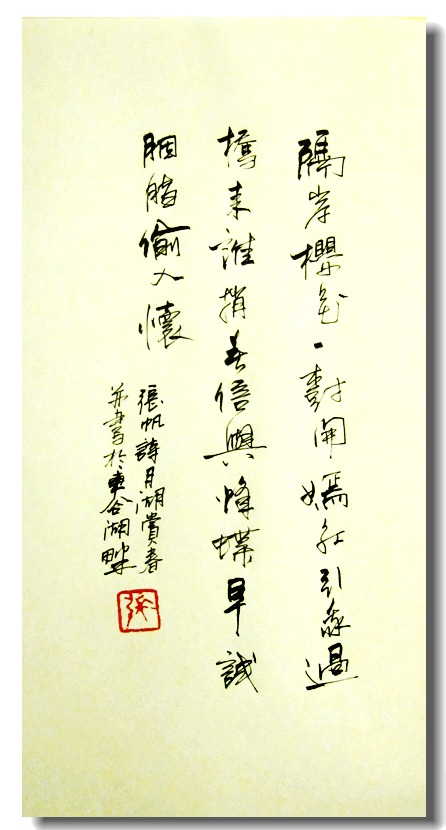 隔岸櫻花一樹開嫣紅引過
橋來誰捎春信與蜂蝶早識
胭脂偷入懷
張帆詩月湖賞春
并書於車谷湖畔
張